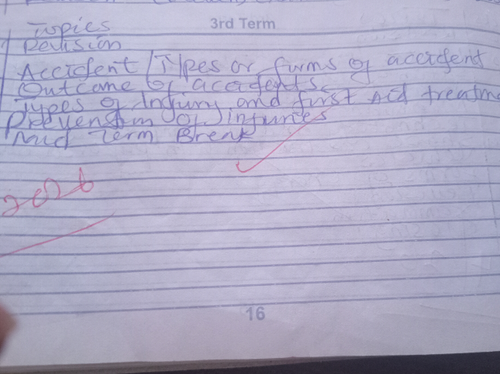 3rd Term
Topics
Revision
Accident / Types or forms of accident
Outcome of accidents.
Types of Injury and first Aid treatm
Prevension of injuries
Mid Term Break
2026
16